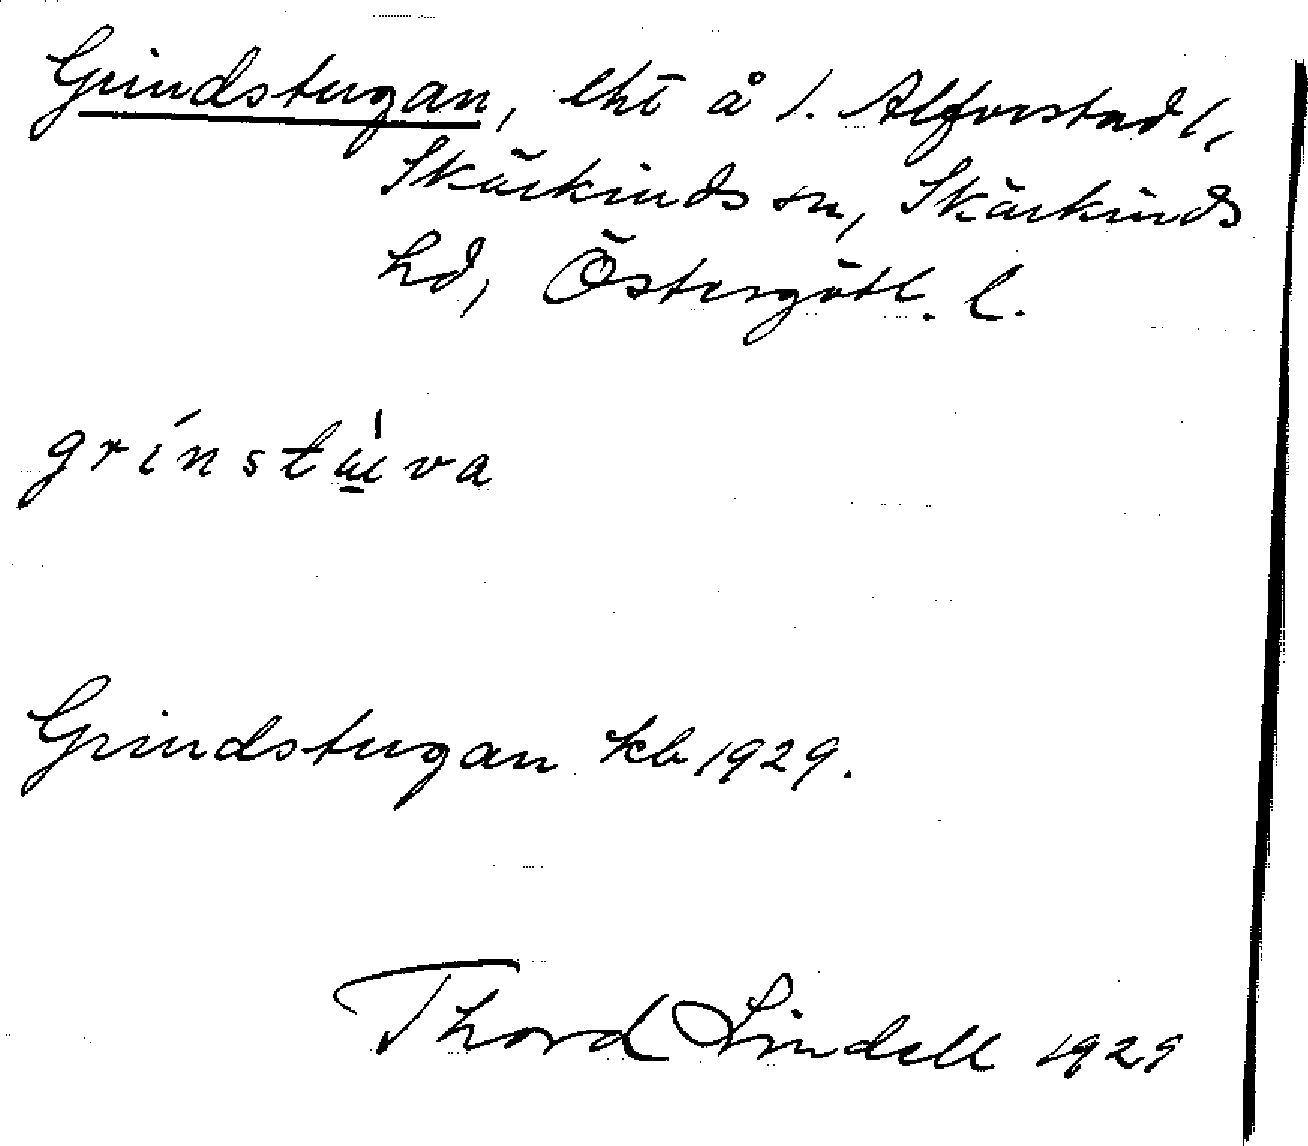 Grindstugan, lht å l. Alfvestad 1,
Skärkinds sn, Skärkinds
hd, Östergötl. l.
grinstu̱va
Grindstugan kb 1929.
Thord Lindell 1929